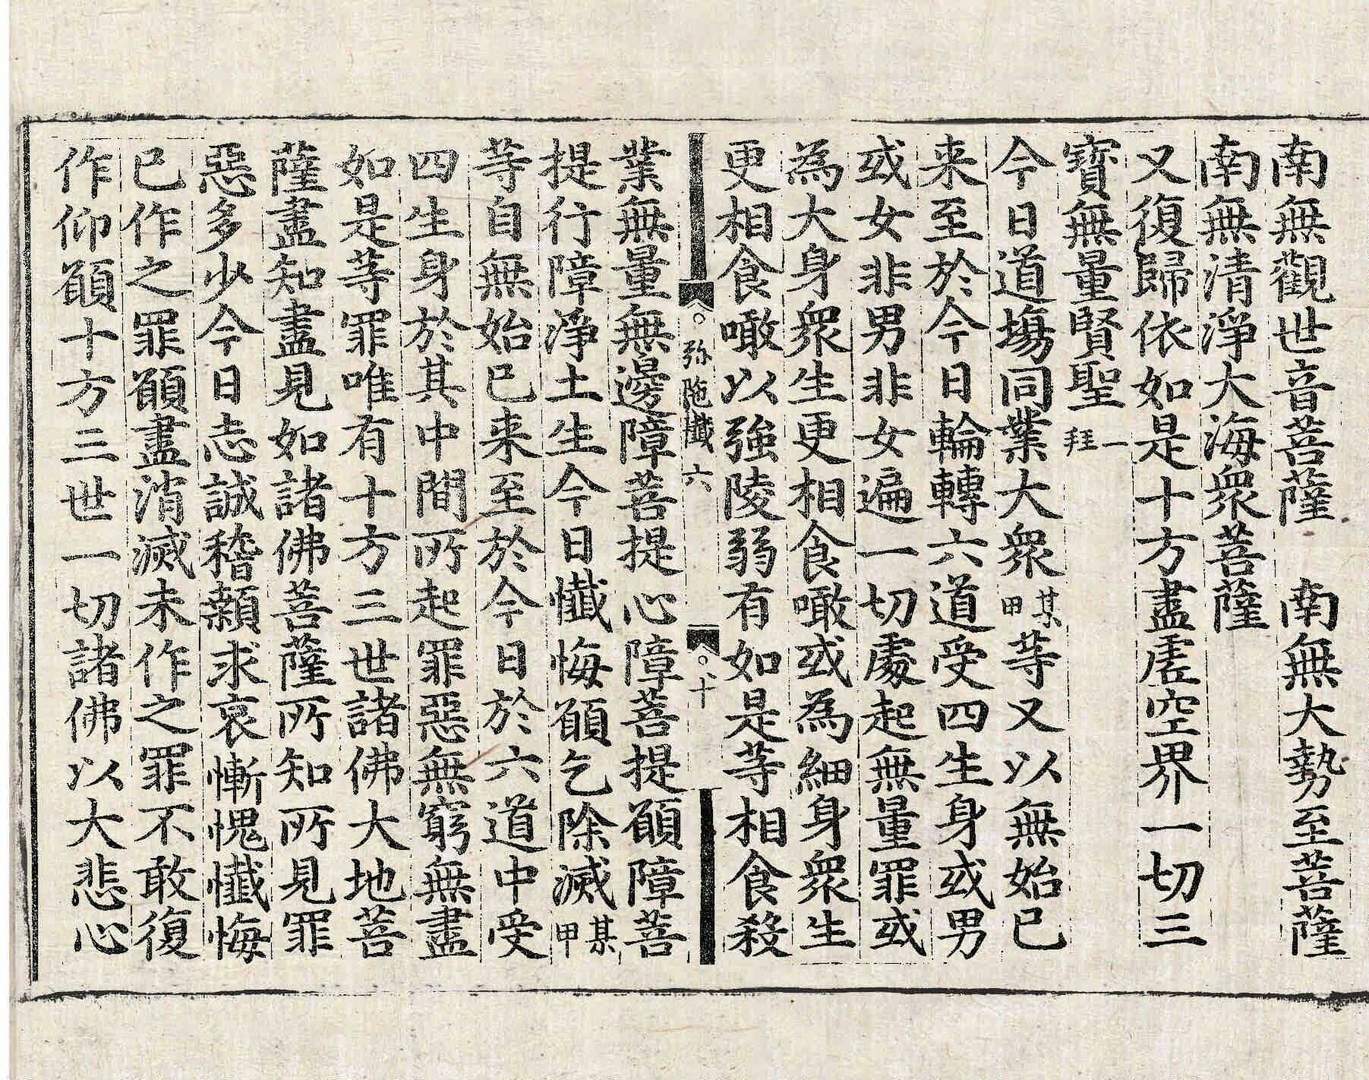 南無觀世音菩薩　南無大勢至菩薩
南無清淨大海衆菩薩
又復歸依如是十方盡虛空界一切三
寶無量賢聖一拜
今日道場同業大衆某甲等又以無始已
来至於今日輪轉六道受四生身或男
或女非男非女遍一切處起無量罪或
為大身衆生更相食噉或為細身衆生
更相食噉以強陵弱有如是等相食殺
弥陁懺六　十
業無量無邊障菩提心障菩提願障菩
提行障淨土生今日懺悔願乞除滅某甲
等自無始已来至於今日於六道中受
四生身於其中間所起罪惡無窮無盡
如是等罪唯有十方三世諸佛大地菩
薩盡知盡見如諸佛菩薩所知所見罪
惡多少今日志誠稽顙求哀慚愧懺悔
已作之罪願盡消滅未作之罪不敢復
作仰願十方三世一切諸佛以大悲心